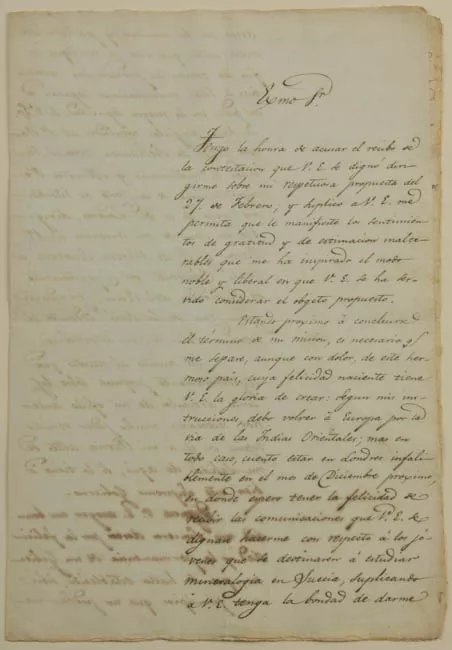 Exmo Sr
Tengo la honra de acusar el recibo de
la contestacion que V. E. se dignó diri-
girme sobre mi respetuosa propuesta del
27 de Febrero, y suplico a V. E. me
permita que le manifieste los sentimien-
tos de gratitud y de estimacion inalte-
rables que me ha inspirado el modo
noble y liberal en que V. E. se ha ser-
vido considerar el objeto propuesto.
Estando proximo á concluirse
el término de mi mision, es necesario q.e
me separe, aunque con dolor, de este her-
moso pais, cuya felicidad naciente tiene
V. E. la gloria de crear: segun mis ins-
trucciones, debo volver á Europa por la
via de las Indias Orientales; mas en
todo caso, cuento estar en Londres infali-
blemente en el mes de Diciembre proximo,
en donde espero tener la felicidad de
recibir las comunicaciones que V. E. se
dignará hacerme con respecto á los jó-
venes que se destinaren á estudiar
mineralogia en Suecia, suplicando
á V. E. tenga la bondad de darme